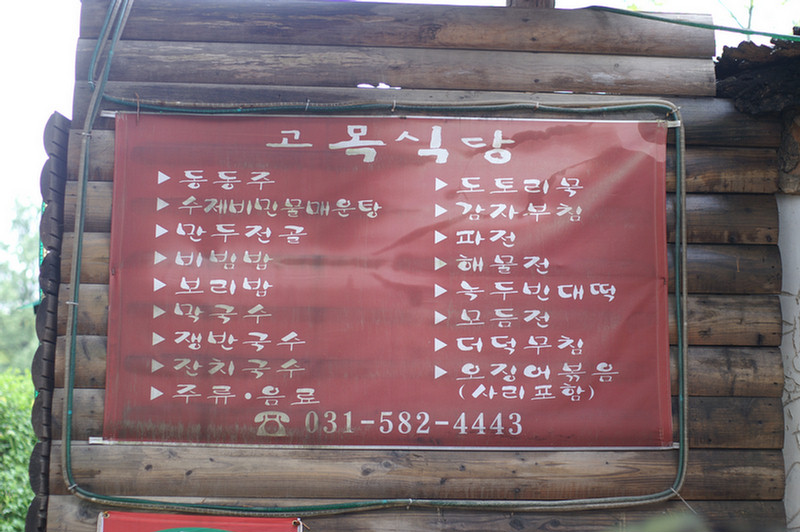 고목식당
▶동동주
▶수제비민물매운탕
▶만두전골
▶비빔밥
▶보리밥
▶막국수
▶쟁반국수
▶잔치국수
▶주류·음료
▶도토리묵
▶감자부침
▶파전
▶해물전
▶녹두빈대떡
▶모듬전
▶더덕무침
▶오징어볶음
(사리포함)
☎ 031-582-4443